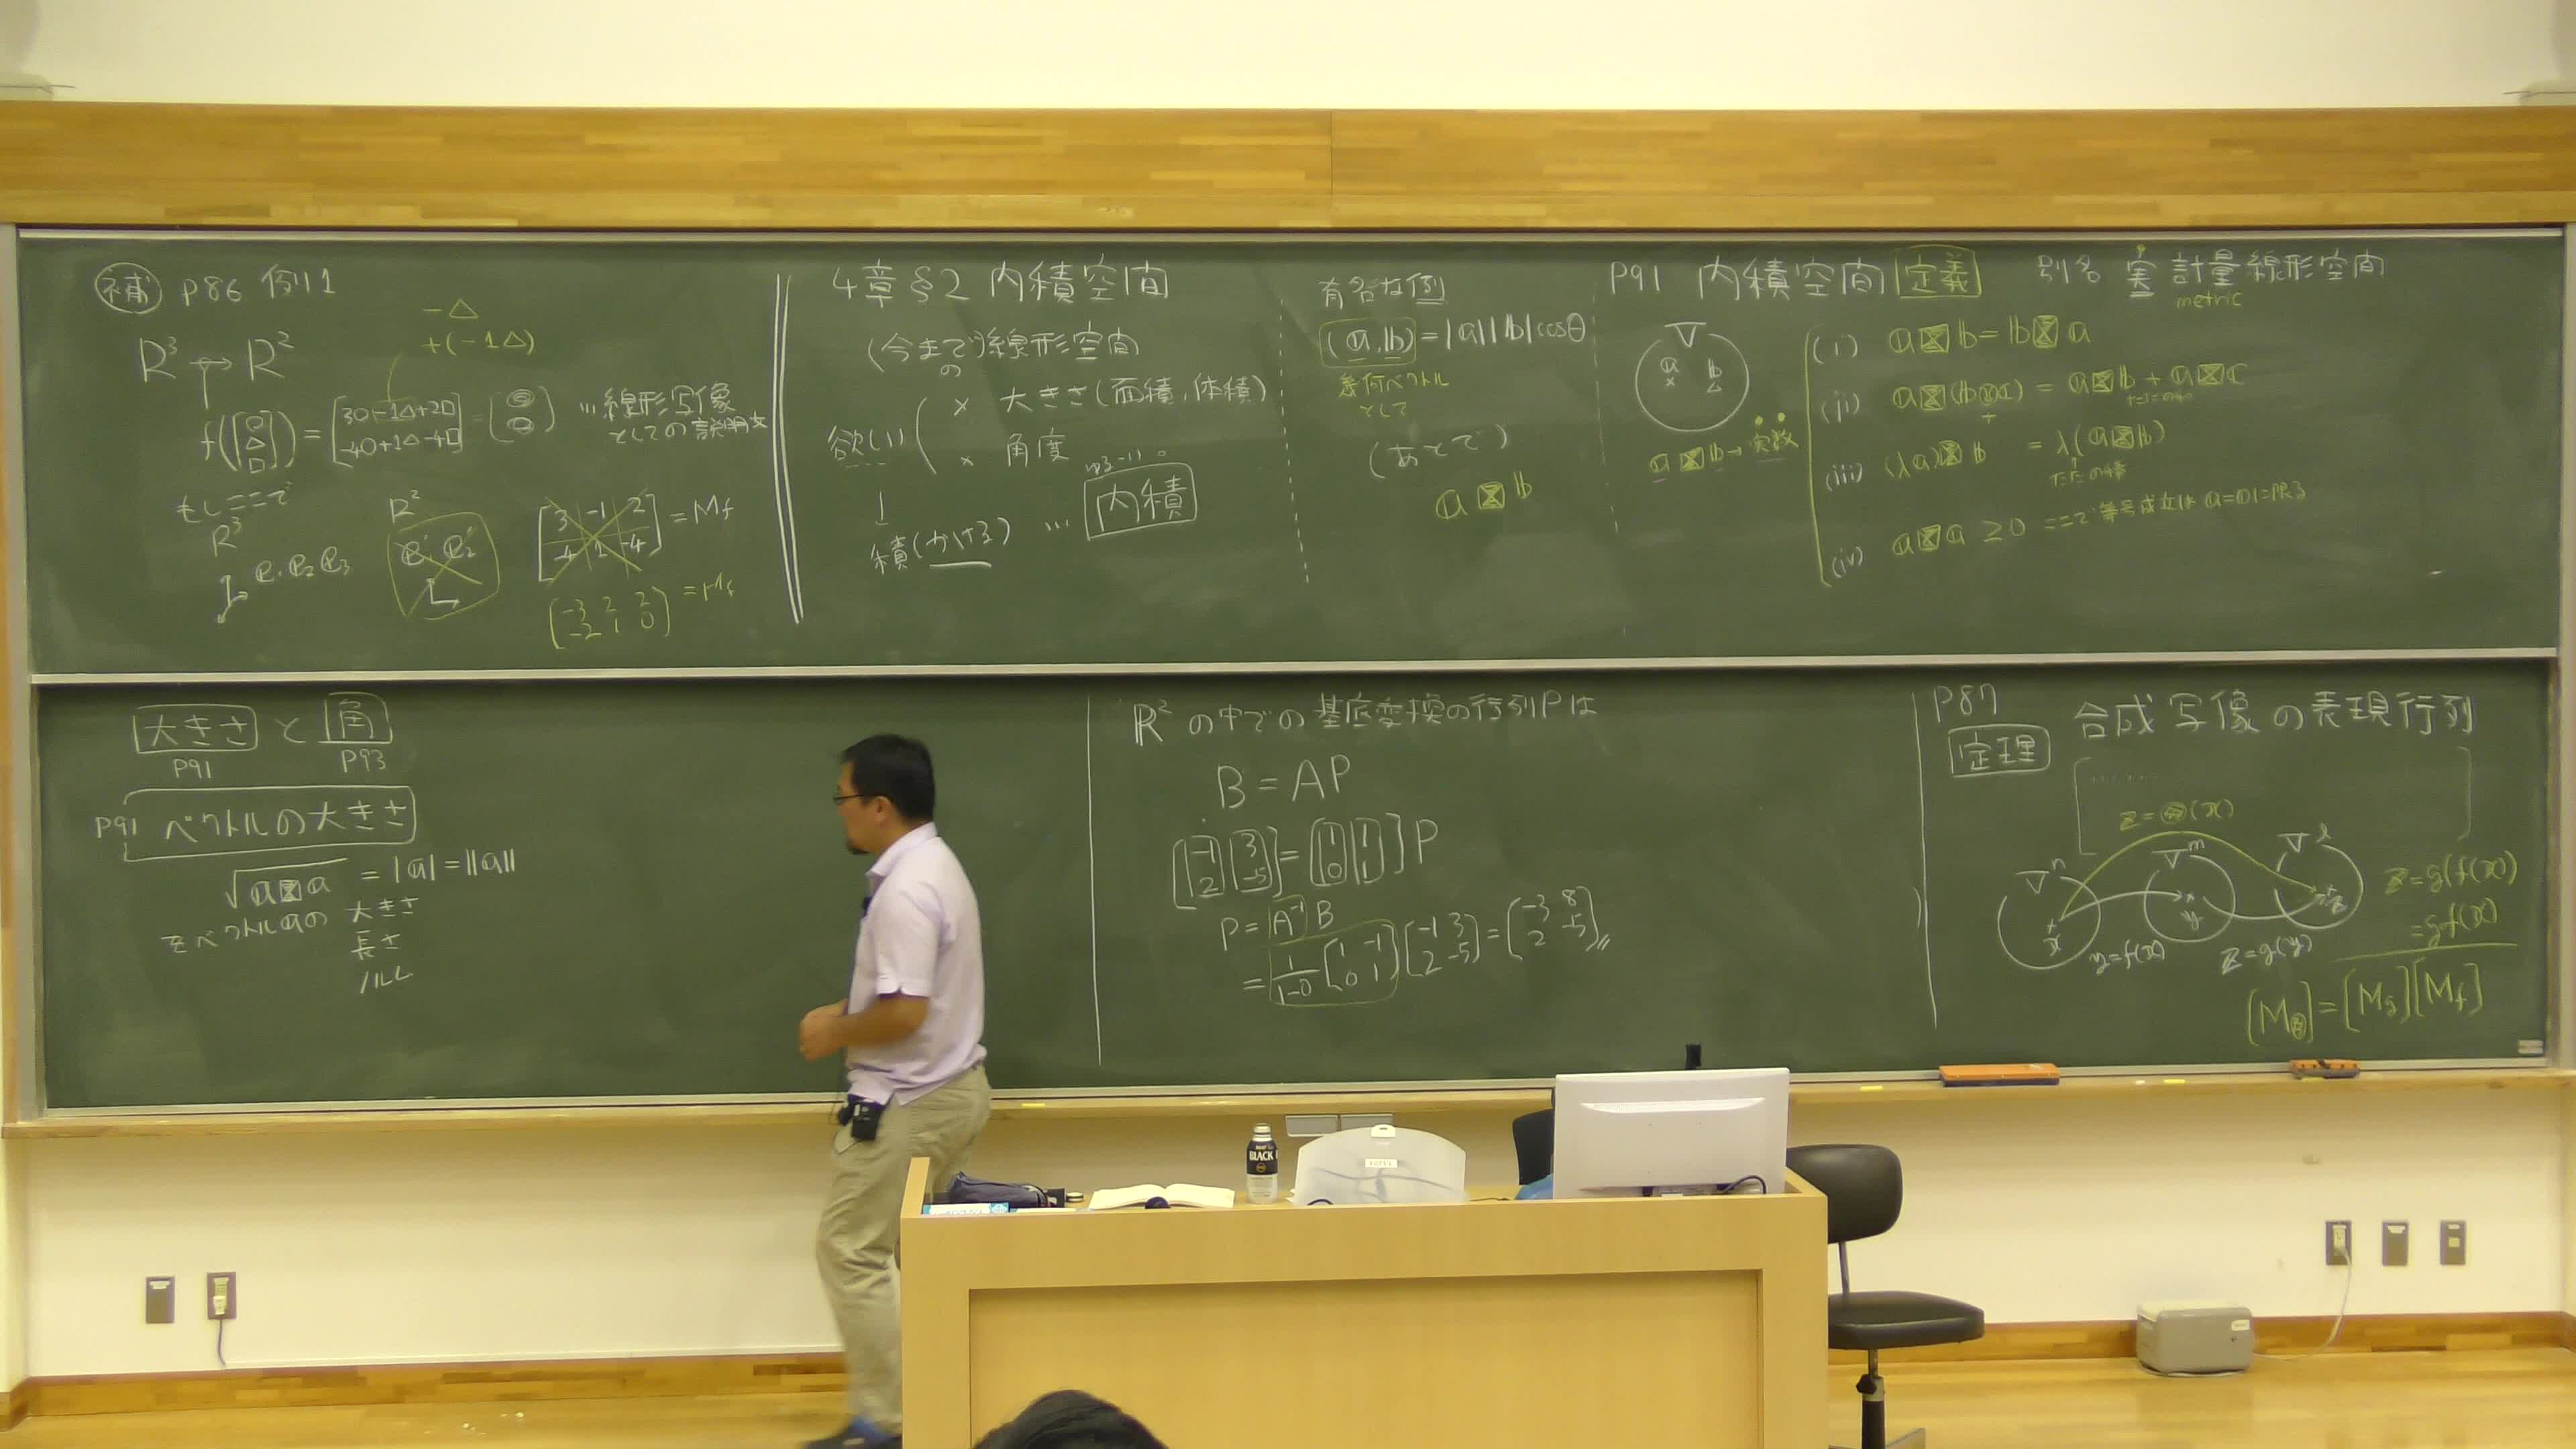 補 P86 例1
-△
+(-1△)
R³ → R²
f([○ △ □]) = [3○-1△+2□ -4○+1△-4□] = (◎ ○) … 線形写像
としての説明文
もしここで
R³
R²
[3 -1 2 -4 1 -4] = Mf
(-3 2 2 -2 1 0) = Mf
4章§2 内積空間
(今まで)線形空間
の
× 大きさ(面積,体積)
欲しい
× 角度
↓
積(かける) … 内積
有名な例
(a,b)=|a||b|cosθ
幾何ベクトル
として
(あとで)
a⊠b
P91 内積空間 定義 別名 実計量線形空間
metric
V
a b
a⊠b→実数
(i) a⊠b=b⊠a
(ii) a⊠(b+c) = a⊠b + a⊠c
(iii) (λa)⊠b = λ(a⊠b)
(iv) a⊠a ≥0 ここで等号成立は a=0
大きさ と 角
P91 P93
P91 ベクトルの大きさ
√a⊠a = |a| = ||a||
をベクトルaの 大きさ
長さ
ノルム
R² の中での基底変換の行列Pは
B = AP
[(-1 2)(3 -5)] = [(1 0)(1 1)] P
P = A⁻¹ B
= 1/(1-0) [1 -1 0 1] [-1 3 2 -5] = [-3 8 2 -5]
P87
定理 合成写像の表現行列
Vⁿ Vᵐ Vˡ
x y z
y=f(x) z=g(y)
z=g(f(x))
=gf(x)
[Mg][Mf]
BLACK